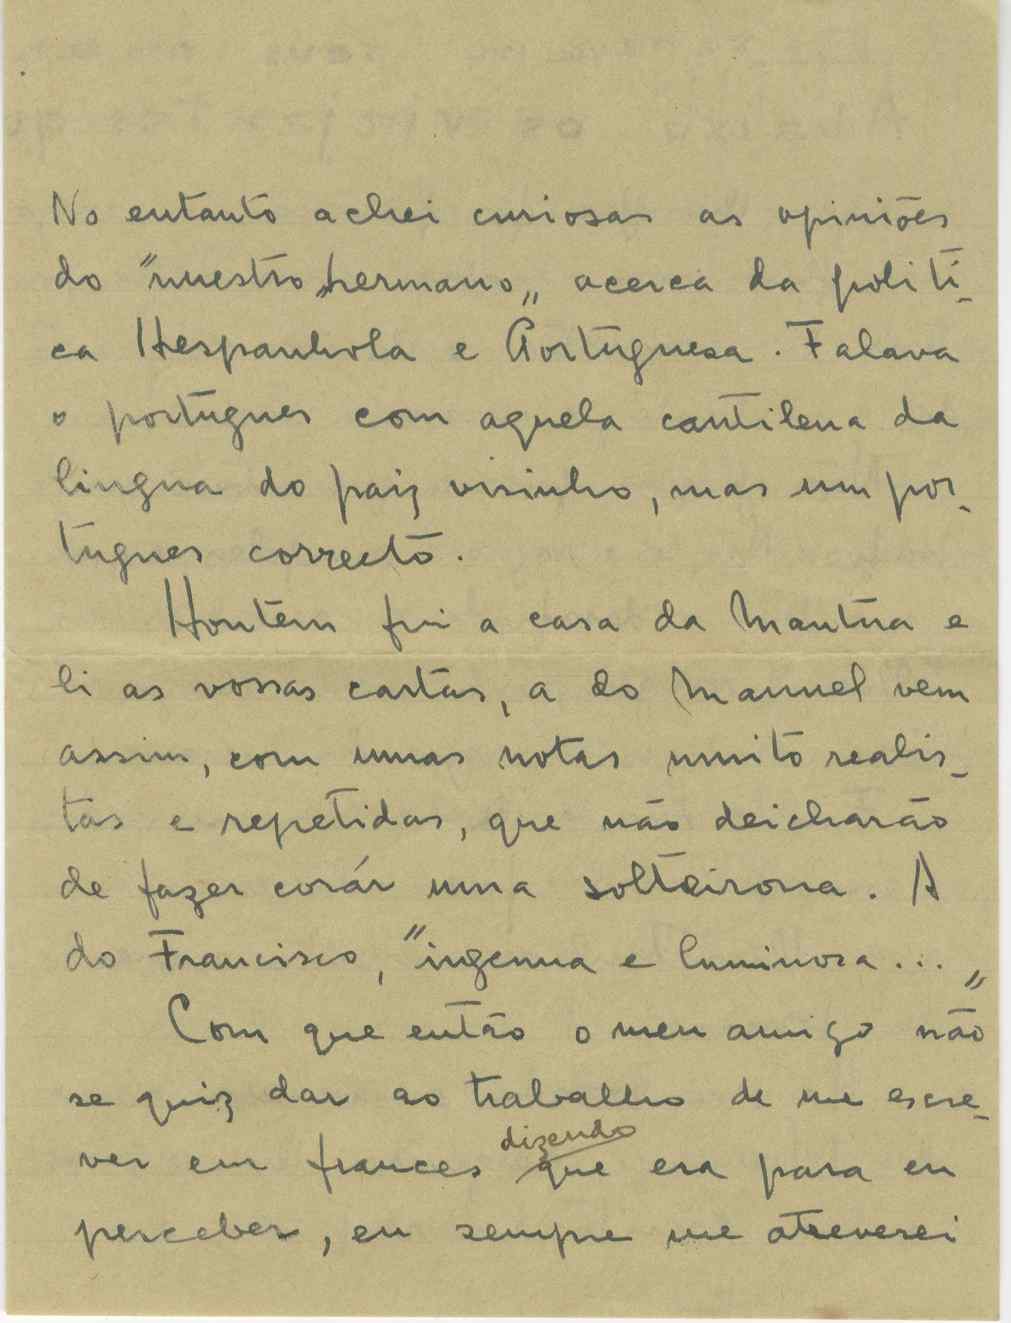 No entanto achei curiosas as opiniões
do "nuestro hermano„ acerca da politi-
ca Hespanhola e Portuguesa. Falava
o portugues com aquela cantilena da
lingua do paiz visinho, mas um por-
tugues correcto.
Hontem fui a casa da Mantua e
li as vossas cartas, a do Manuel vem
assim, com umas notas muito realis-
tas e repetidas, que não deicharão
de fazer corár uma solteirona. A
do Francisco, "ingenua e luminosa... „
Com que então o meu amigo não
se quiz dar ao trabalho de me escre-
dizendo
ver em frances que era para eu
perceber, eu sempre me atreverei